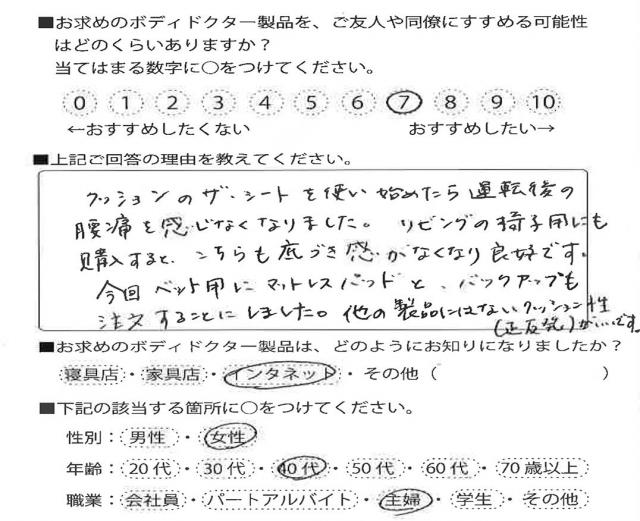 ■お求めのボディドクター製品を、ご友人や同僚にすすめる可能性
はどのくらいありますか？
当てはまる数字に○をつけてください。
0 1 2 3 4 5 6 7 8 9 10
←おすすめしたくない おすすめしたい→
■上記ご回答の理由を教えてください。
クッションのザ・シートを使い始めたら運転後の
腰痛を感じなくなりました。リビングの椅子用にも
購入すると、こちらも底づき感がなくなり良好です。
今回ベット用にマットレスパッドと、バックアップも
注文することにしました。他の製品にはないクッション性
(正反発)がいいです。
■お求めのボディドクター製品は、どのようにお知りになりましたか？
寝具店・家具店・インタネット・その他（ ）
■下記の該当する箇所に○をつけてください。
性別：男性・女性
年齢：20代・30代・40代・50代・60代・70歳以上
職業：会社員・パートアルバイト・主婦・学生・その他